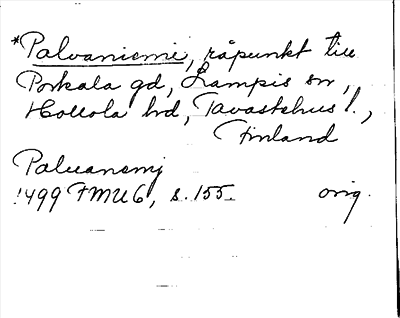 *Palvaniemi, råpunkt till
Porkala gd, Lampis sn,
Hollola hd, Tavastehus l.,
Finland
Paluanemj
1499 FMU 6, s. 155.   orig.